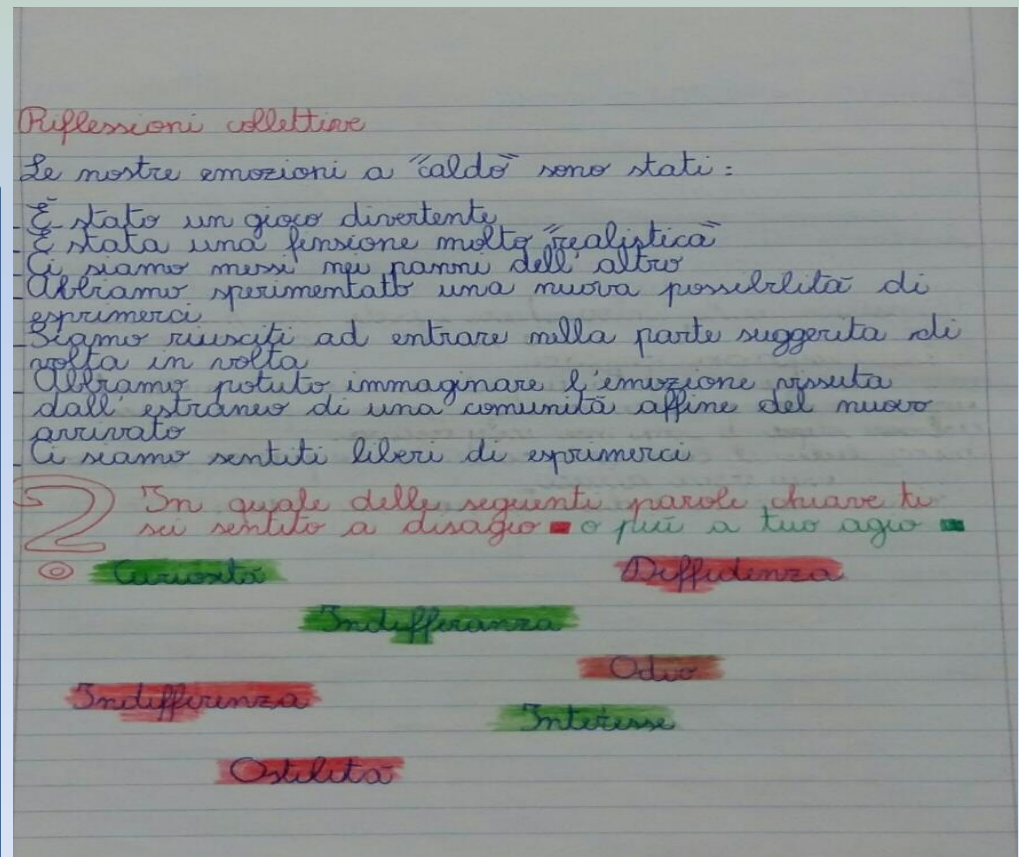 Riflessioni collettive
Le nostre emozioni a "caldo" sono stati:
- È stato un gioco divertente
- È stata una finsione molto "realistica"
- Ci siamo messi nei panni dell'altro
- Abbiamo sperimentato una nuova possibilità di
esprimerci
- Siamo riusciti ad entrare nella parte suggerita di
volta in volta
- Abbiamo potuto immaginare l'emozione vissuta
dall'estraneo di una comunità affine del nuovo
arrivato
- Ci siamo sentiti liberi di esprimerci
? In quale delle seguenti parole chiave ti
sei sentito a disagio o più a tuo agio
Curiosità Diffidenza
Indifferanza
Odio
Indifferenza
Interesse
Ostilità